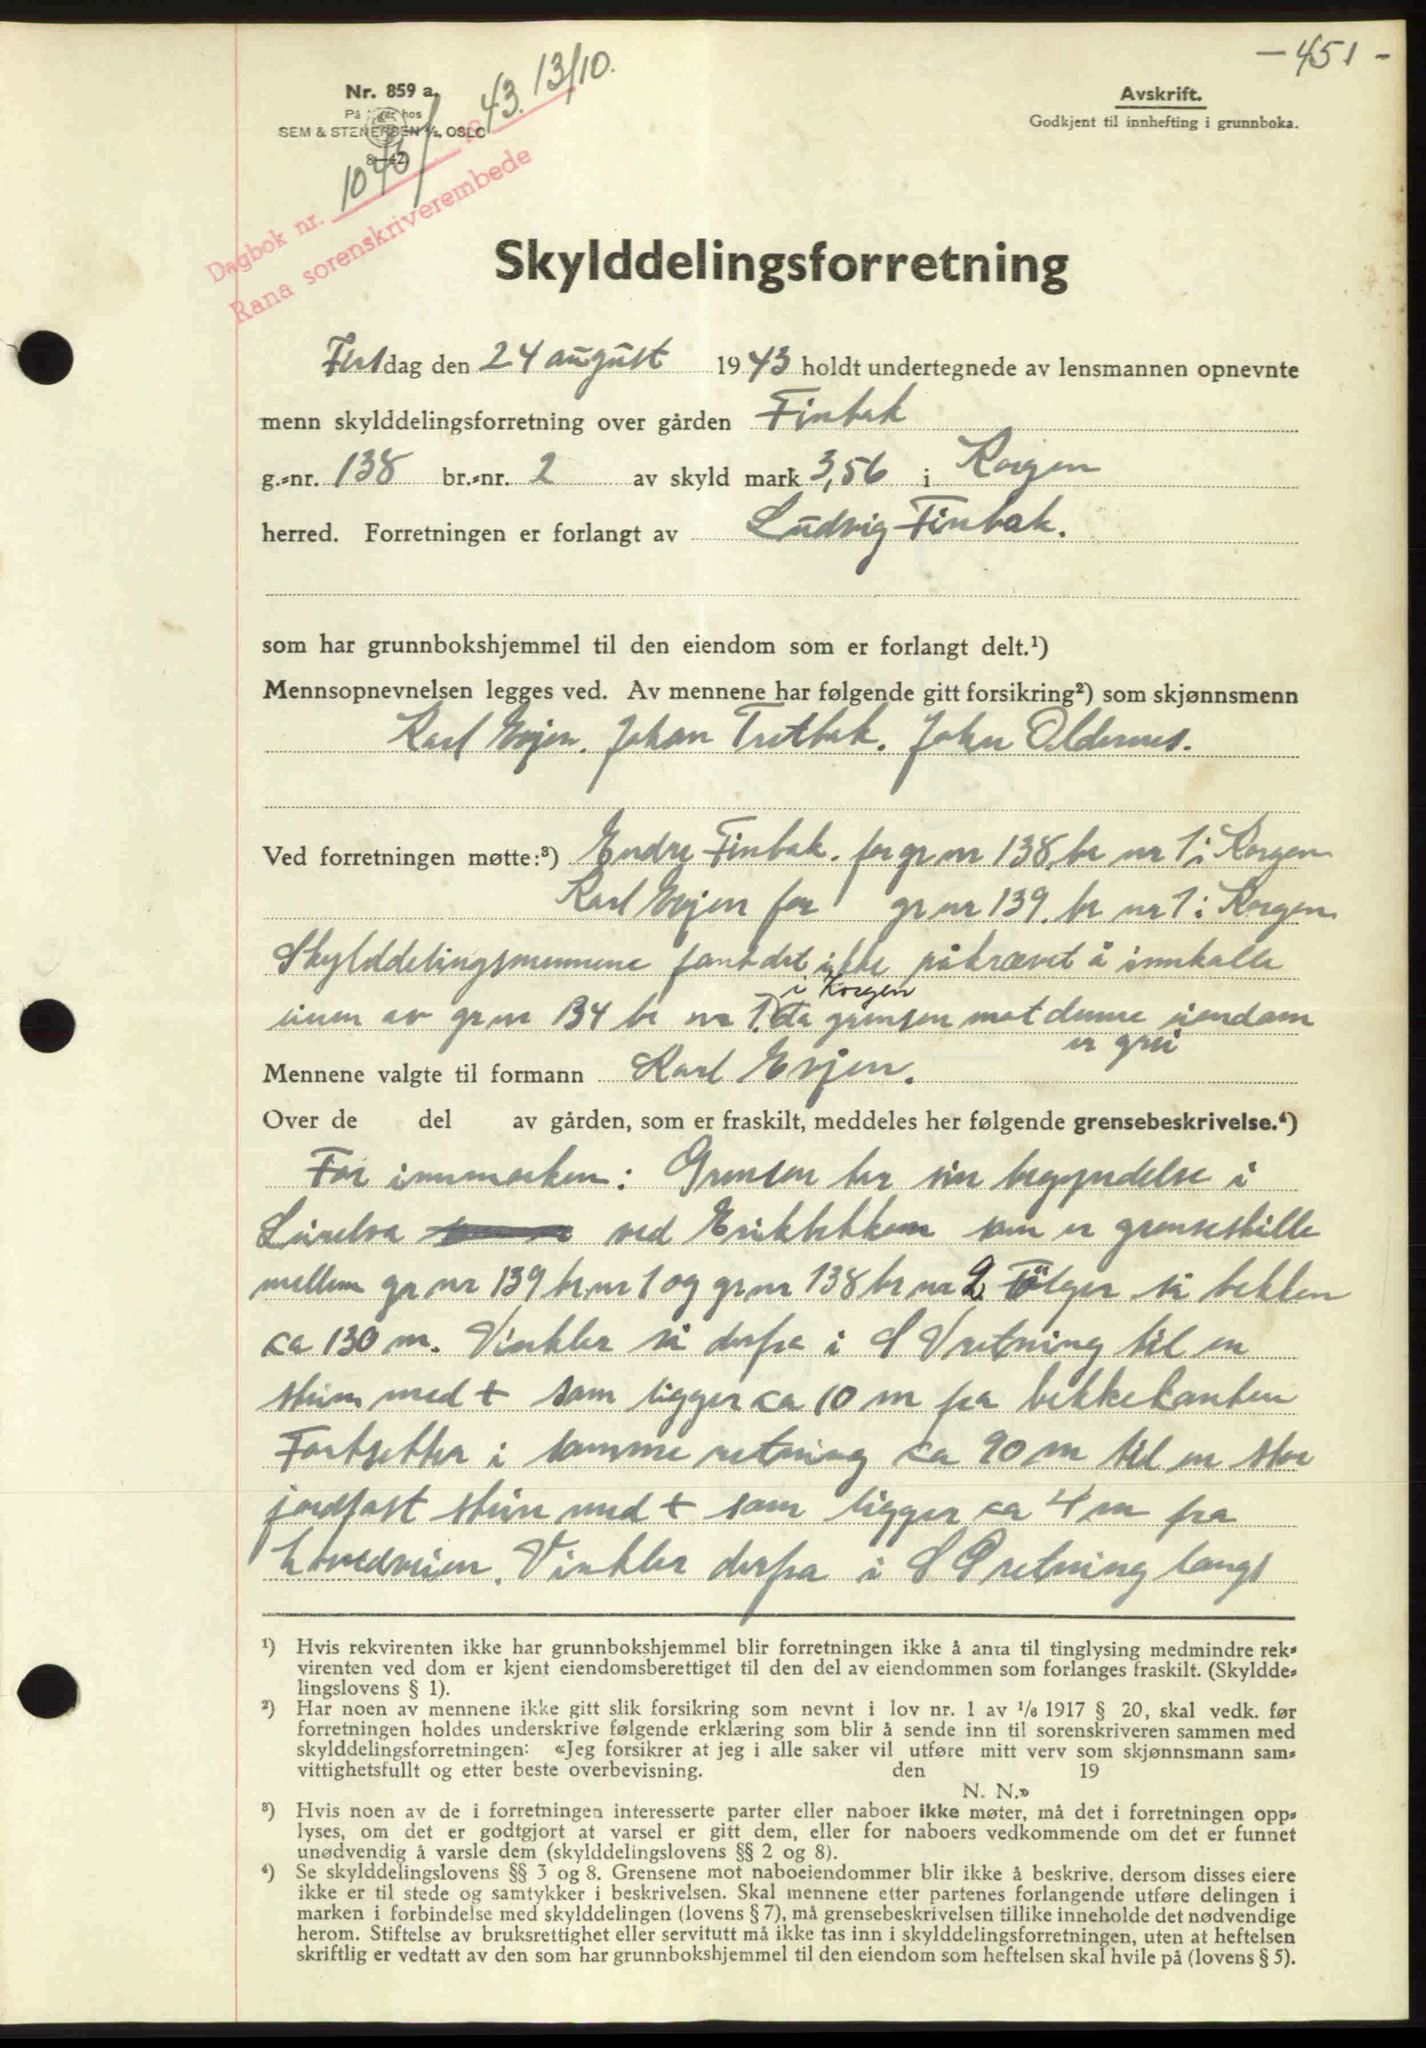 - 451 -
Nr. 859 a.
På lager hos
SEM & STENERSEN A/S, OSLO
8-42
Avskrift.
Godkjent til innhefting i grunnboka.
Dagbok nr. 1045/1943. 13/10.
Rana sorenskriverembede
Skylddelingsforretning
Tirsdag den 24 august 1943 holdt undertegnede av lensmannen opnevnte
menn skylddelingsforretning over gården Finbak
g.-nr. 138 br.-nr. 2 av skyld mark 3,56 i Korgen
herred. Forretningen er forlangt av Ludvig Finbak.
som har grunnbokshjemmel til den eiendom som er forlangt delt.¹)
Mennsopnevnelsen legges ved. Av mennene har følgende gitt forsikring²) som skjønnsmenn
Karl Evjen. Johan Tretbak. John Oldernes.
Ved forretningen møtte:³) Endre Finbak. for gr nr 138, br nr 1 i Korgen
Karl Evjen for gr nr 139. br nr 1 i Korgen.
Skylddelingsmennene fant det ikke påkrævet å innkalle
eieren av gr nr 134 br nr 1. i Korgen da grensen mot denne eiendom
er grei
Mennene valgte til formann Karl Evjen.
Over de del av gården, som er fraskilt, meddeles her følgende grensebeskrivelse.⁴)
For innmarken: Grensen tar sin begyndelse i
Lurelva ved Erikbekken som er grenseskille
mellem gr nr 139 br. nr 1 og gr nr 138 br nr 2. Følger så bekken
ca 130 m. Vinkler så derfra i S V retning til en
stein med + som ligger ca 10 m fra bekkekanten
Fortsetter i samme retning ca 90 m til en stor
jordfast stein med + som ligger ca 4 m fra
hovedveien. Vinkler derfra i S Ø retning langs
¹) Hvis rekvirenten ikke har grunnbokshjemmel blir forretningen ikke å anta til tinglysing medmindre rek-
virenten ved dom er kjent eiendomsberettiget til den del av eiendommen som forlanges fraskilt. (Skyldde-
lingslovens § 1).
²) Har noen av mennene ikke gitt slik forsikring som nevnt i lov nr. 1 av 1/6 1917 § 20, skal vedk. før
forretningen holdes underskrive følgende erklæring som blir å sende inn til sorenskriveren sammen med
skylddelingsforretningen: «Jeg forsikrer at jeg i alle saker vil utføre mitt verv som skjønnsmann sam-
vittighetsfullt og etter beste overbevisning. den 19
N. N.»
³) Hvis noen av de i forretningen interesserte parter eller naboer ikke møter, må det i forretningen opp-
lyses, om det er godtgjort at varsel er gitt dem, eller for naboers vedkommende om det er funnet
unødvendig å varsle dem (skylddelingslovens §§ 2 og 8).
⁴) Se skylddelingslovens §§ 3 og 8. Grensene mot naboeiendommer blir ikke å beskrive, dersom disses eiere
ikke er til stede og samtykker i beskrivelsen. Skal mennene etter partenes forlangende utføre delingen i
marken i forbindelse med skylddelingen (lovens § 7), må grensebeskrivelsen tillike inneholde det nødvendige
herom. Stiftelse av bruksrettighet eller servitutt må ikke tas inn i skylddelingsforretningen, uten at heftelsen
skriftlig er vedtatt av den som har grunnbokshjemmel til den eiendom som heftelsen skal hvile på (lovens § 5).